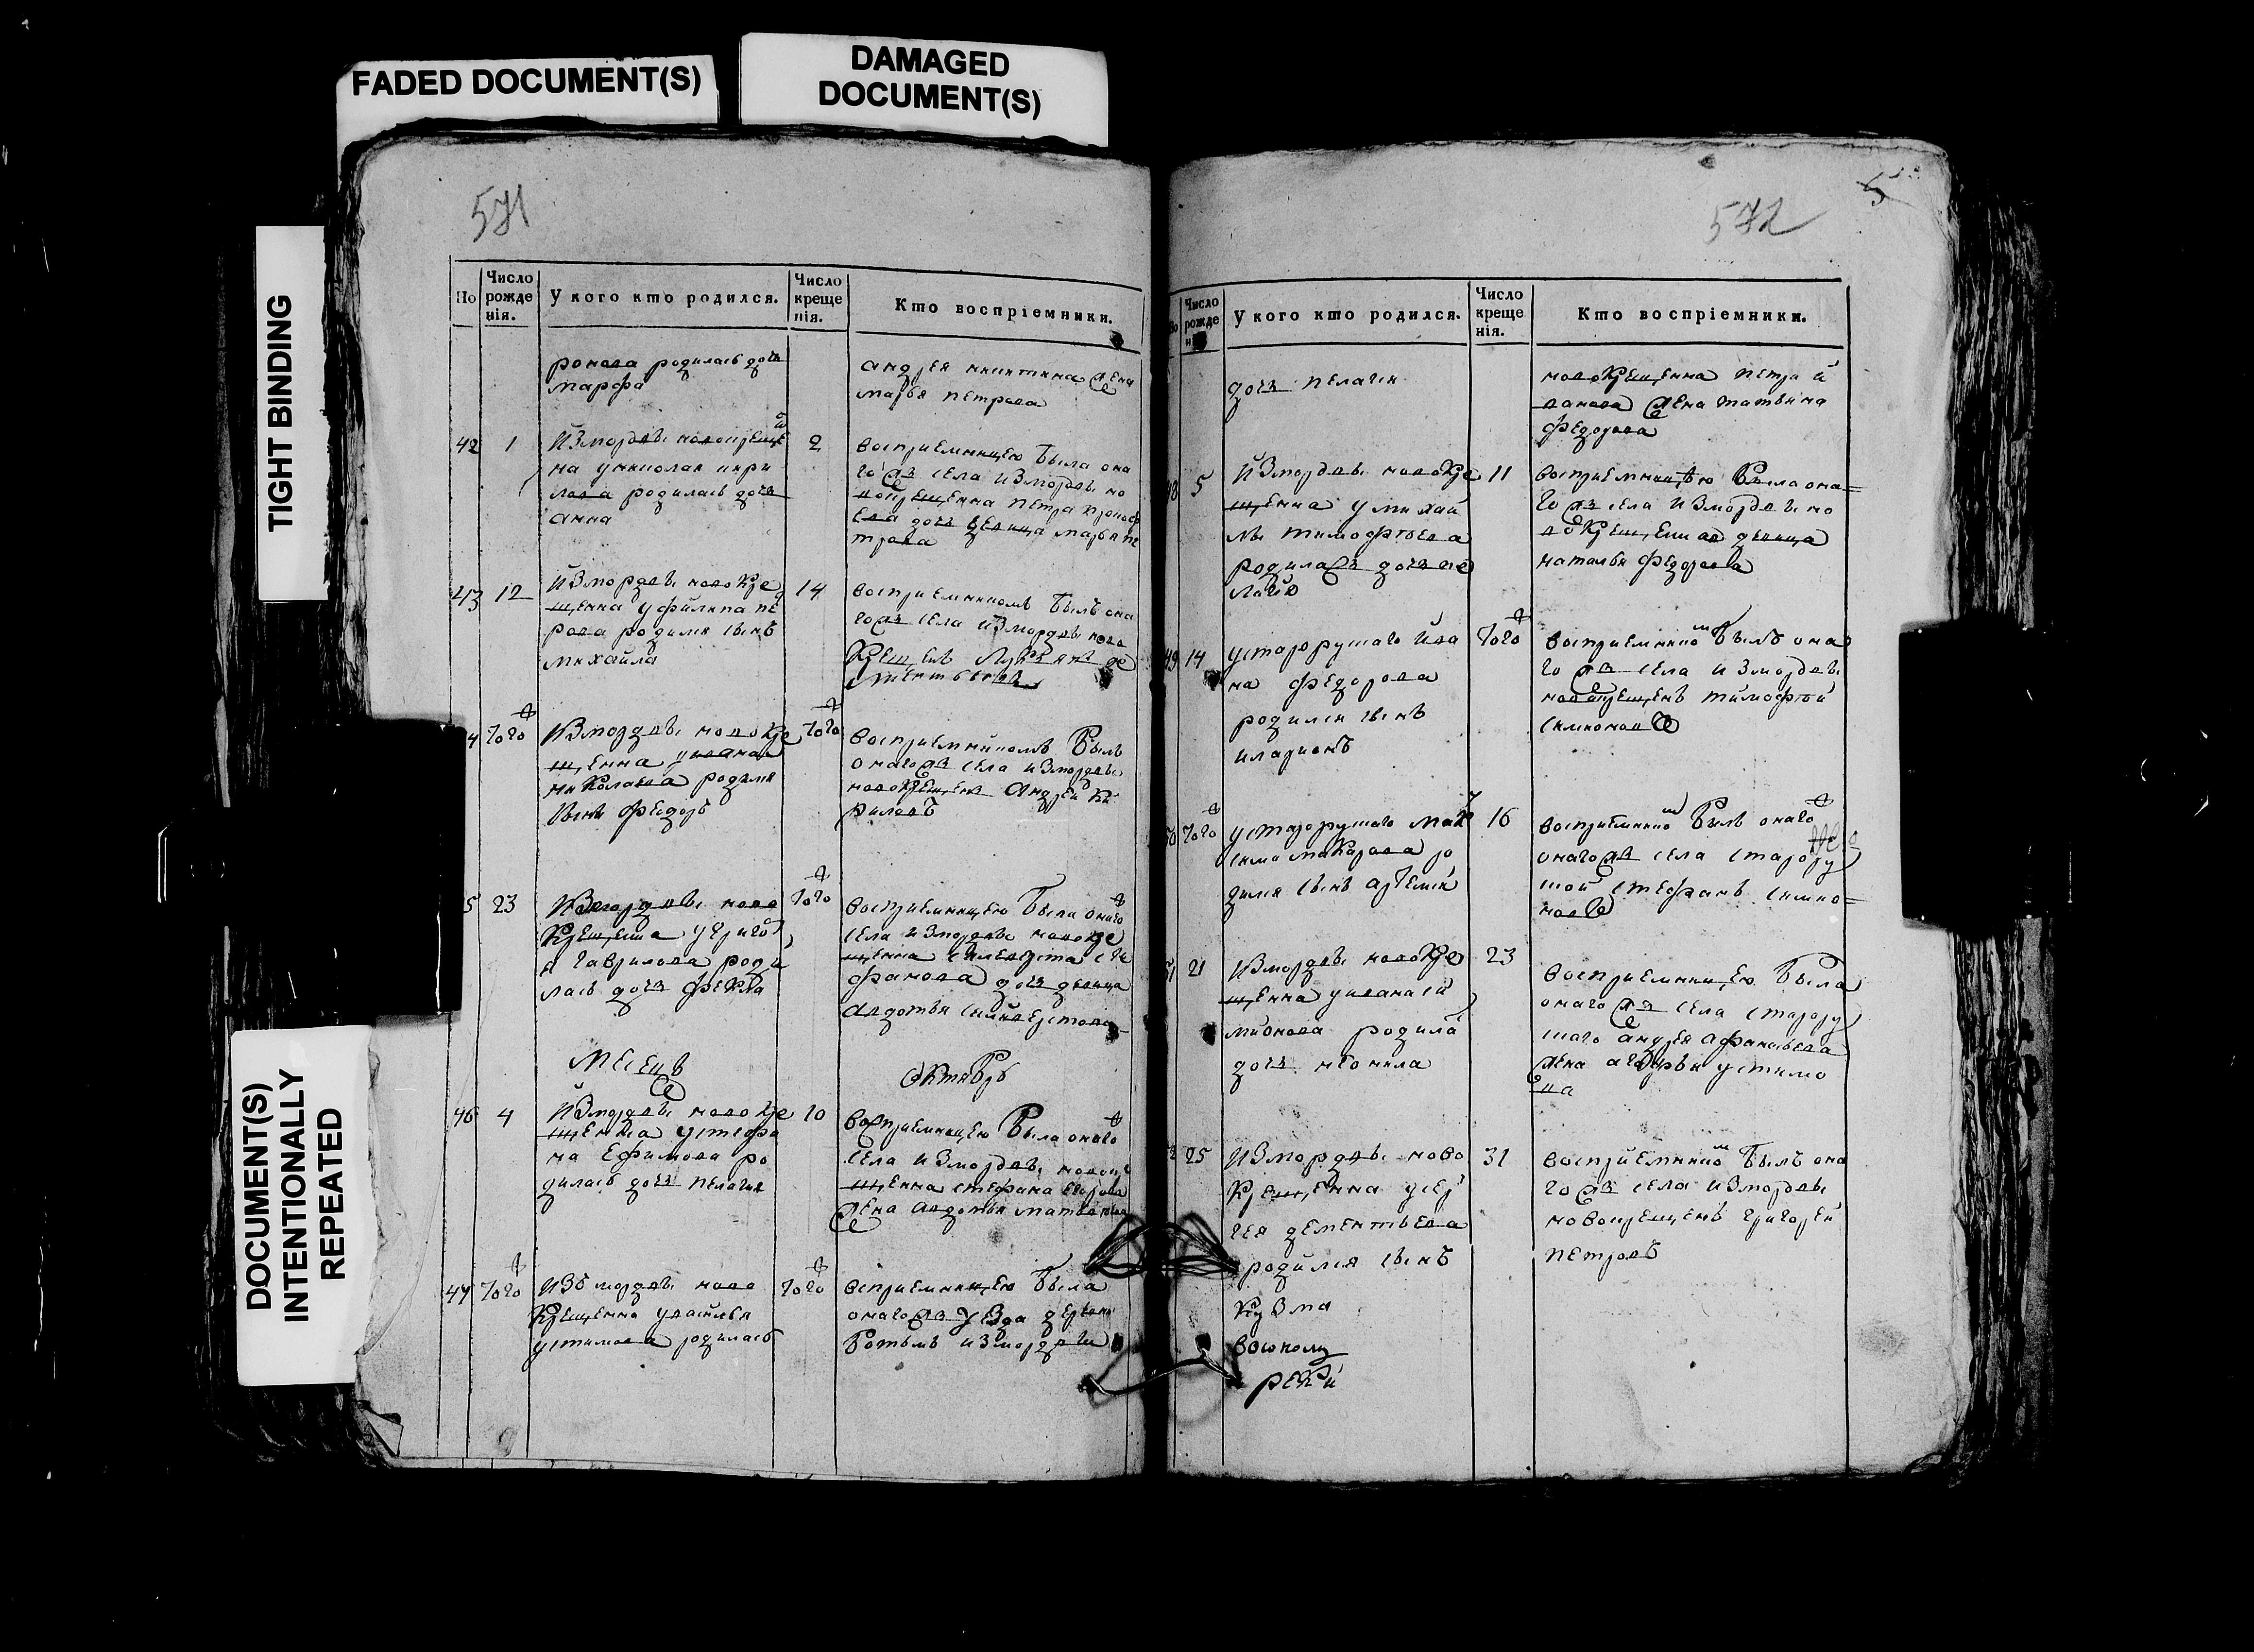 FADED DOCUMENT(S)
DAMAGED
DOCUMENT(S)
TIGHT BINDING
DOCUMENT(S)
INTENTIONALLY
REPEATED
571
Но
Число
рожде
нія.
У кого кто родился.
Число
креще
нія.
Кто воспріемники.
ронова родилась дочь
марфа
андрея никитина жена
марья петрова
42
1
Измордвы новокреще
на униколая кири
лова родилась дочь
анна
2
восприемницею была она
гожъ села измордвы но
вокрещенна петра
дочь девица марья пе
трова
43
12
Измордвы новокре
щенна уфилипа пе
рова родился сынъ
михайла
14
восприемникомъ былъ она
гожъ села измордвы ново
крещенъ Лукьянъ де
ментьевъ
4
того
Измордвы новокре
щенна уивана
николаева родился
сынъ федоръ
того
восприемникомъ былъ
оногожъ села измордвы
новокрещенъ Андрей Ки
риловъ
5
23
Измордвы ново
крещенна угриго
я гаврилова роди
лась дочь фекла
того
восприемницею была онаго
села измордвы новокре
щенна силвеста сте
фанова дочь девица
авдотья силвестова
Месецъ
Октябрь
46
4
Измордвы новокре
щенна устефа
на Ефимова ро
дилась дочь пелагия
10
восприемницею была онаго
села измордвы новокре
щенна стефана егорова
жена авдотья матвеева
47
того
Изъ мордвы ново
крещенна увасилья
устимова родилась
того
восприемницею была
оногожъ уезда деревни
измордвы
572
5
Но
Число
рожде
нія.
У кого кто родился.
Число
креще
нія.
Кто воспріемники.
дочь пелагия
новокрещенна петра и
ванова жена татьяна
федорова
48
5
Измордвы новокре
щенна умихай
лы тимофѣева
родилась дочь пе
лагѣю
11
восприемницѣю была она=
гожъ села измордвы но
вокрещеная девица
наталья федорова
49
14
устарорускаго ива
на федорова
родился сынъ
иладионъ
того
восприемником былъ она
гожъ села измордвы
новокрещенъ тимофѣй
симионовъ
50
того
устарорускаго мак
сима макарова ро
дился сынъ артемий
16
восприемником былъ онаго
оногожъ села старору
ской стефанъ симио=
новъ
51
21
Измордвы новокре
щенна уивана си
мионова родила
дочь неонила
23
восприемницею была
оногожъ села старору
скаго андрея афанасьева
жена агафья устимо
ва
2
25
Измордвы ново
крещенна усер
гея дементьева
родился сынъ
Кузма
31
восприемником былъ она
гожъ села измордвы
новокрещенъ григорей
петровъ